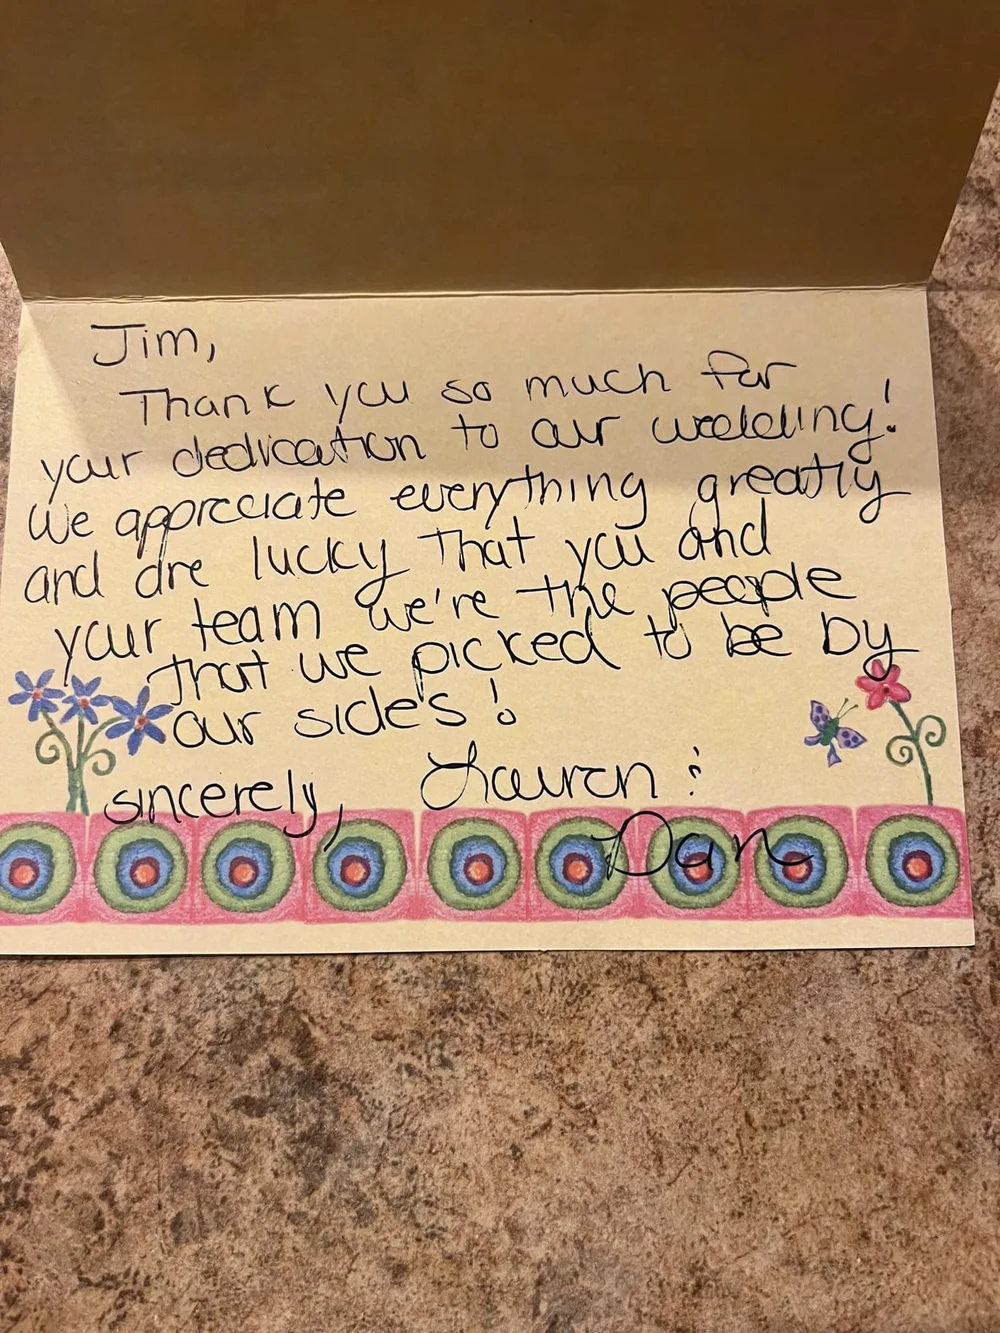 Jim,
Thank you so much for
your dedication to our wedding!
We appreciate everything greatly
and are lucky that you and
your team we're the people
that we picked to be by
our sides!
sincerely, Lauren &
Dan